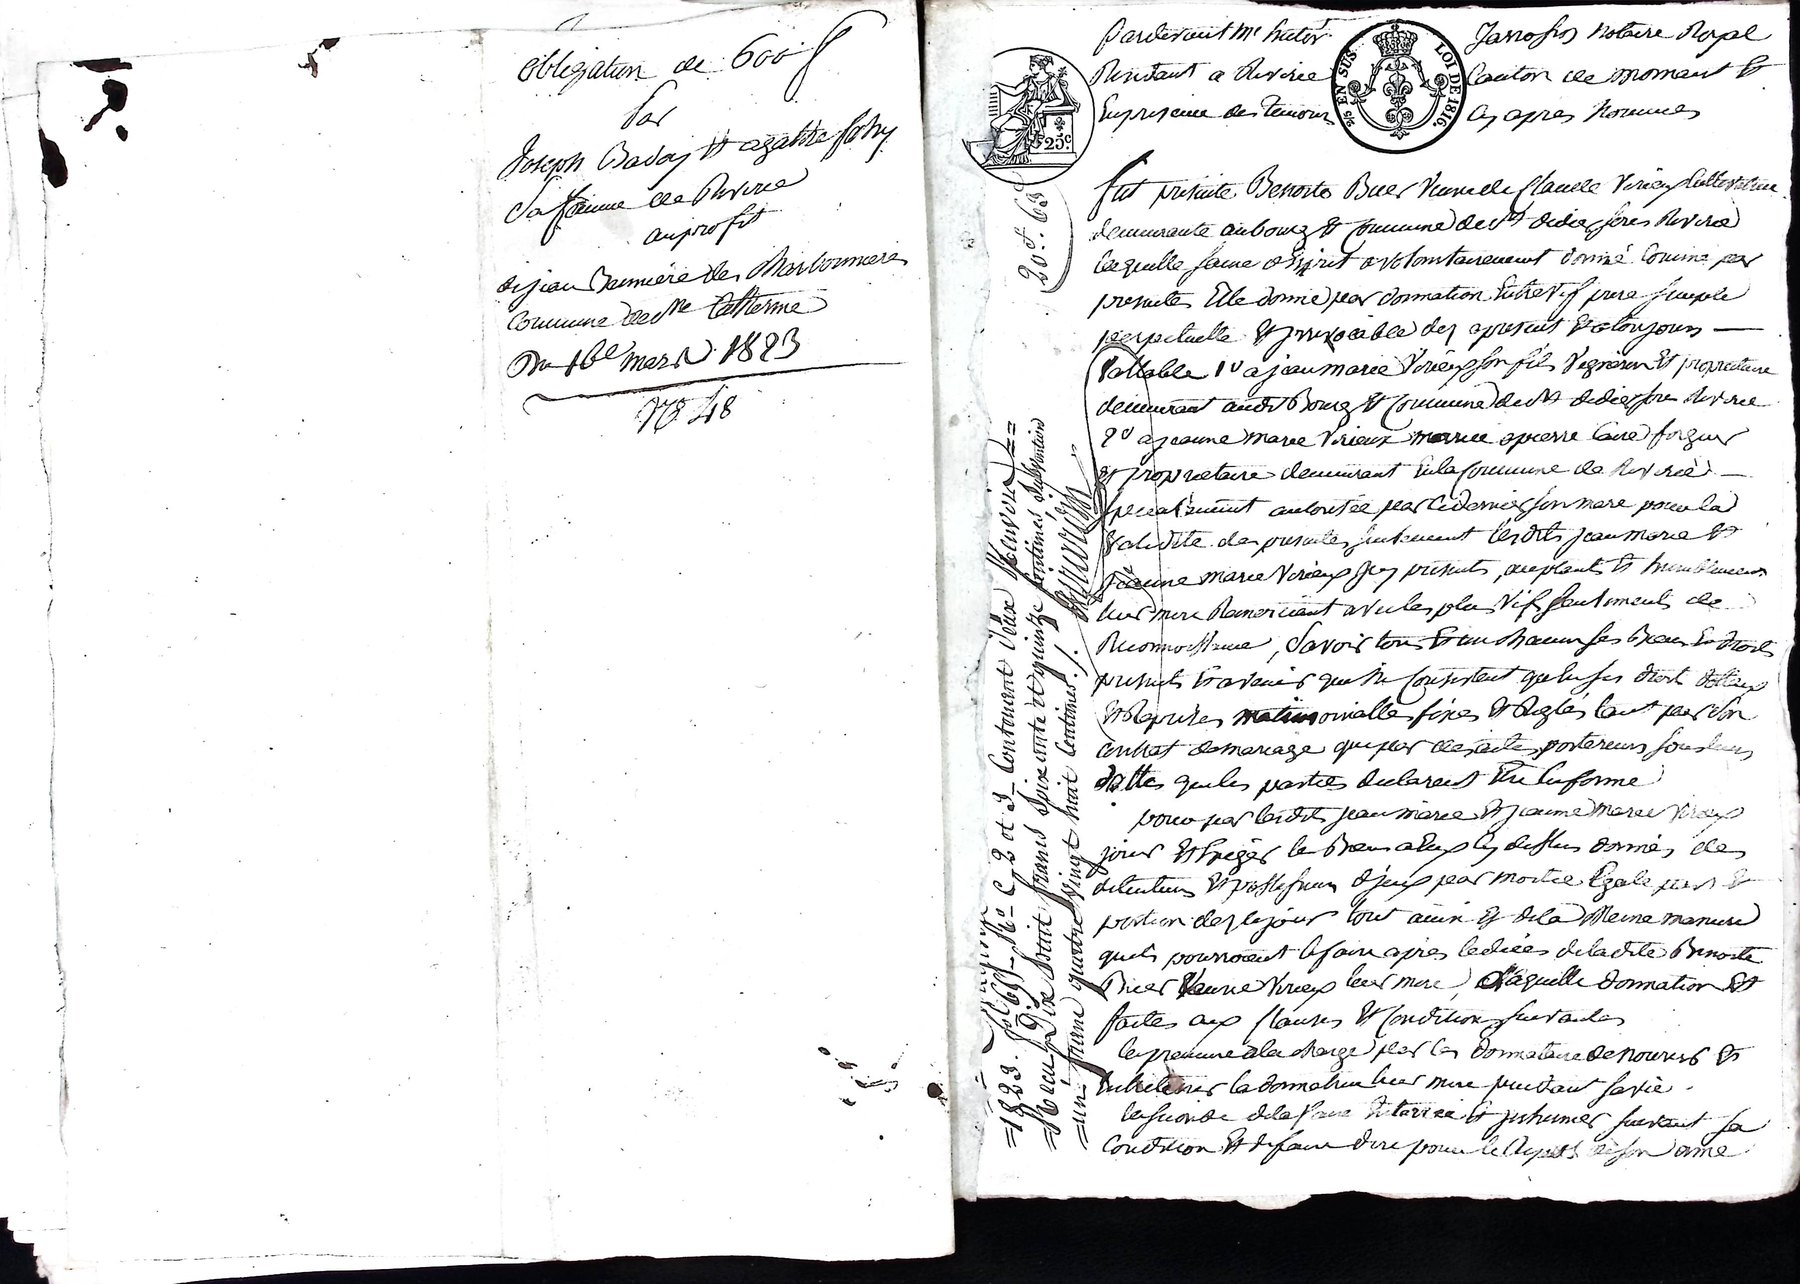 obligation de 600 f
par
Joseph Baday et agathe
Sa femme de Riverie
au profit
de jean des Charbonnieres
Commune de Ste Catherine
Du 16e mars 1823
No 48
Pardevant Me hector Jarrosson Notaire Royal
Residant a Riverie Canton de mornant et
En presence des temoins cy apres Nommes
EN SUS
LOI DE 1816.
25c.
fut presente Benoite Veuve de Claude Virieux
demeurante au bourg et Commune de St didier sous Riverie
laquelle saine d'Esprit a volontairement donné Comme par
presentes Elle donne par donnation Entrevif pure simple
perpetuelle et irrevocable des apresent et atoujours
Vallable 1o a jean marie Virieux son fils Vigneron et proprietaire
demeurant audit Bourg et Commune de St didier sous Riverie
2o a jeanne marie Virieux mariée a pierre forgeur
et proprietaire demeurant En la Commune de Riverie
specialement autorisée par ce dernier son mari pour la
validité des presentes seulement lesdits jean marie et
jeanne marie Virieux icy presents, acceptants et humblement
leur mere Remerciant avec les plus vifs sentiments de
Reconnoissance, Savoir tous Et un chacun ses Biens Et droits
presents Et avenir qui ne Consistent qu'en ses droits dottaux
Et Reprises matrimonialles fixés et Reglés tant par son
contrat de mariage que par des actes posterieurs sous leurs
dattes que les parties declarent En forme
pour par lesdits jean marie et jeanne marie Virieux
jouir Et les Biens a Eux cy dessus donnés des
detenteurs et possesseurs d'iceux par moitié Egale part et
portion des ce jour tout ainsi et de la meme maniere
quils pourroient le faire apres le dicés de la dite Benoite
Veuve Virieux leur mere, Laquelle donnation Est
faites aux Clauses Et Conditions suivantes
la premiere a la charge par les donnataires de nourrir et
Entretenir la donnatrice leur mere pendant sa vie.
la seconde de la faire Enterrer et inhumer suivant sa
Condition Et de faire dire pour le Repos de son ame
20 f. 63 c
=1823. fo 69 Ro C 2 et 3 Contenant deux Renvois==
=Reçu Dix huit francs soixante et quinze Centimes subvention
=un franc quatre vingt huit Centimes./.